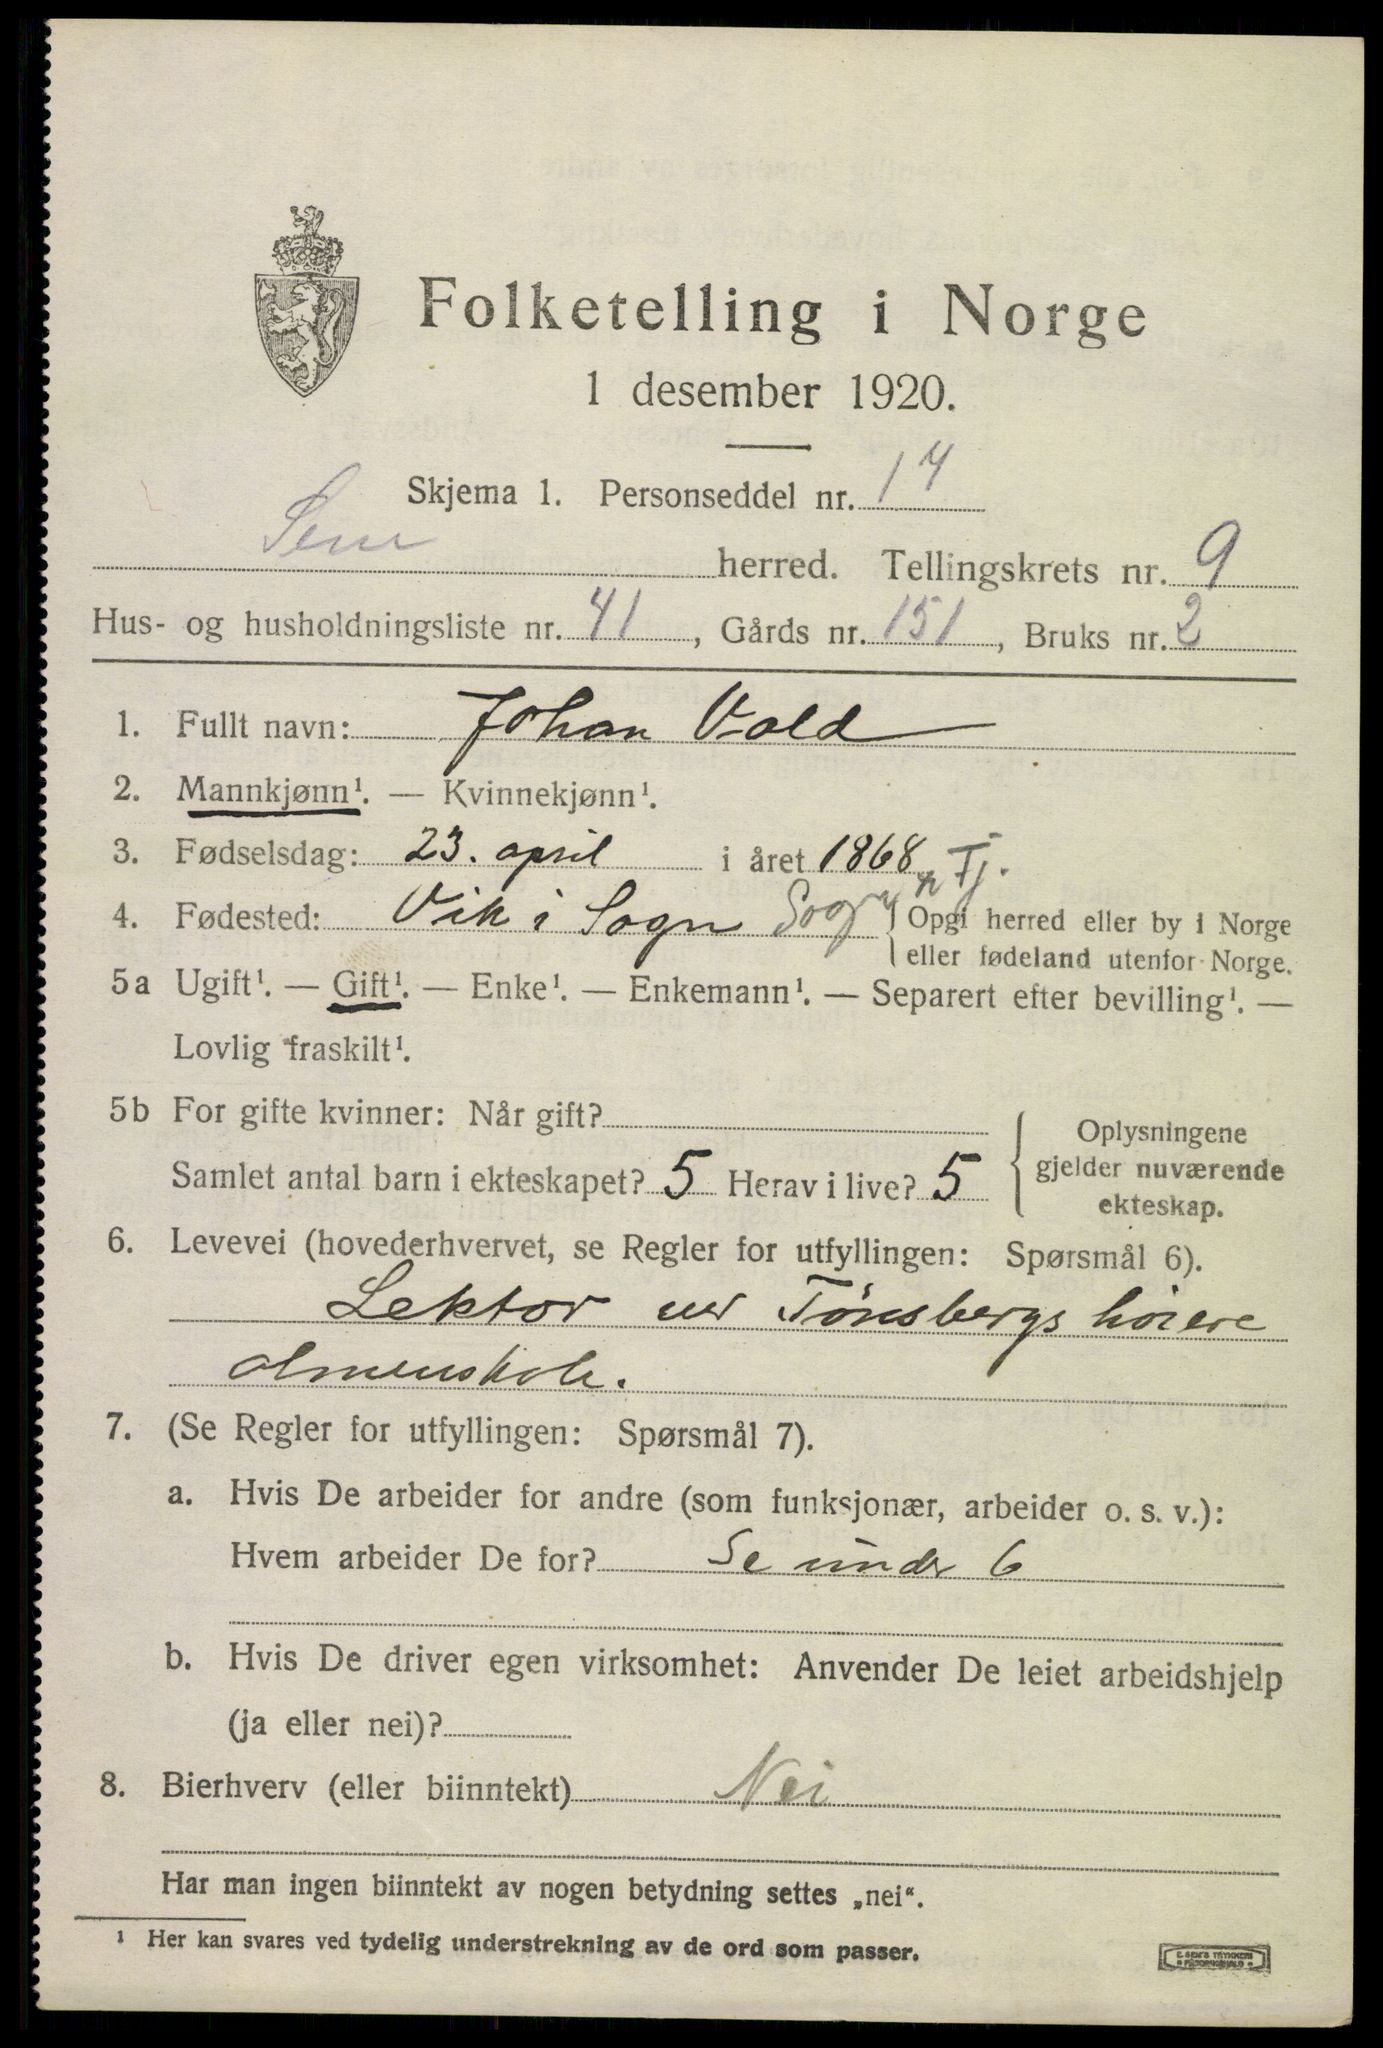 Folketelling i Norge
1 desember 1920.
Skjema 1. Personseddel nr. 14
Sem herred. Tellingskrets nr. 9
Hus- og husholdningsliste nr. 41, Gårds nr. 151, Bruks nr. 2
1. Fullt navn: Johan Vold
2. Mannkjønn¹. — Kvinnekjønn¹.
3. Fødselsdag: 23. april i året 1868
4. Fødested: Vik i Sogn Sogn & Fj. { Opgi herred eller by i Norge
eller fødeland utenfor Norge.
5a Ugift¹. — Gift¹. — Enke¹. — Enkemann¹. — Separert efter bevilling¹. —
Lovlig fraskilt¹.
5b For gifte kvinner: Når gift?
Samlet antal barn i ekteskapet? 5 Herav i live? 5
{ Oplysningene
gjelder nuværende
ekteskap.
6. Levevei (hovederhvervet, se Regler for utfyllingen: Spørsmål 6).
Lektor ved Tønsbergs høiere
almenskole.
7. (Se Regler for utfyllingen: Spørsmål 7).
a. Hvis De arbeider for andre (som funksjonær, arbeider o. s. v.):
Hvem arbeider De for? Se under 6
b. Hvis De driver egen virksomhet: Anvender De leiet arbeidshjelp
(ja eller nei)?
8. Bierhverv (eller biinntekt) Nei
Har man ingen biinntekt av nogen betydning settes „nei“.
¹ Her kan svares ved tydelig understrekning av de ord som passer.